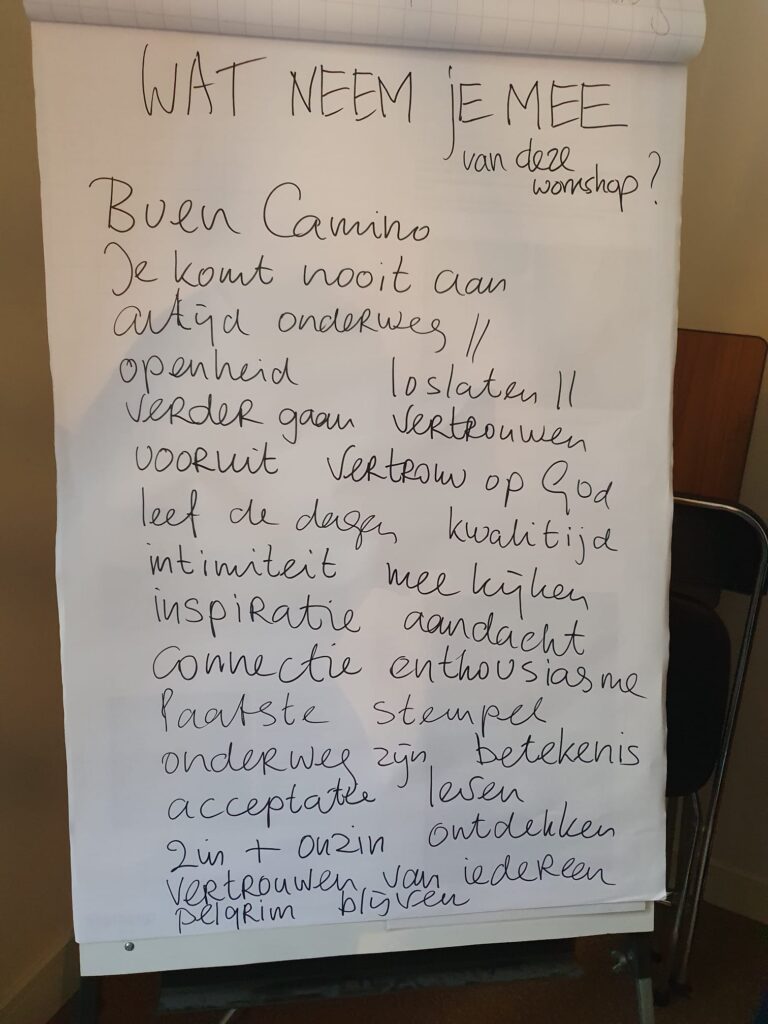 WAT NEEM jE MEE
van deze
workshop?
Buen Camino
Je komt nooit aan
altijd onderweg //
openheid loslaten ||
verder gaan vertrouwen
vooruit vertrouw op God
leef de dagen kwalitijd
intimiteit meekijken
inspiratie aandacht
connectie enthousiasme
laatste stempel
onderweg zijn betekenis
acceptatie leven
zin + onzin ontdekken
vertrouwen van iedereen
pelgrim blijven